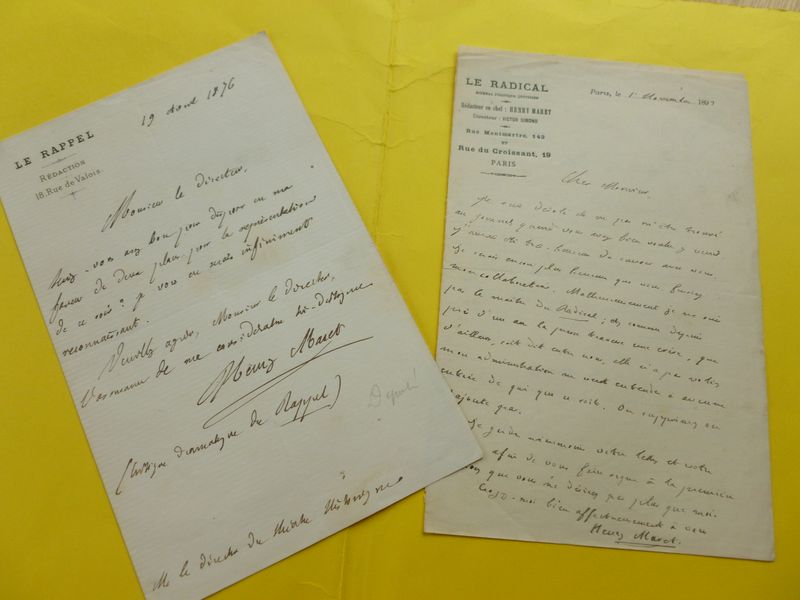 19 Août 1876
LE RAPPEL
RÉDACTION
18, Rue de Valois
Monsieur le directeur,
Seriez-vous assez bon pour disposer en ma
faveur de deux places pour la représentation
de ce soir? Je vous en serais infiniment
reconnaissant.
Veuillez agréer, Monsieur le directeur,
l'assurance de ma considération très-distinguée
Henry Maret
(critique dramatique du Rappel)
Député
M. le directeur du théâtre Historique
LE RADICAL
JOURNAL POLITIQUE QUOTIDIEN
Rédacteur en chef : HENRY MARET
Directeur : VICTOR SIMOND
Rue Montmartre, 142
ET
Rue du Croissant, 19
PARIS
Paris, le 1er Novembre 189
Cher Monsieur,
Je suis désolé de ne pas m'être trouvé
au journal quand vous avez bien voulu y venir
J'aurais été très-heureux de causer avec vous.
Je serais encore plus heureux que vous fussiez
mon collaborateur. Malheureusement je ne suis
pas le maître du Radical; et comme depuis
près d'un an la presse traverse une crise, que
d'ailleurs, soit dit entre nous, elle n'a pas volée
mon administration ne veut entendre à aucune
entrée de qui que ce soit. On supprime on
n'ajoute pas.
Je garde néanmoins votre lettre et votre
afin de vous faire signe à la première
que vous ne désirez pas plus que moi.
Croyez-moi bien affectueusement à vous
Henry Maret